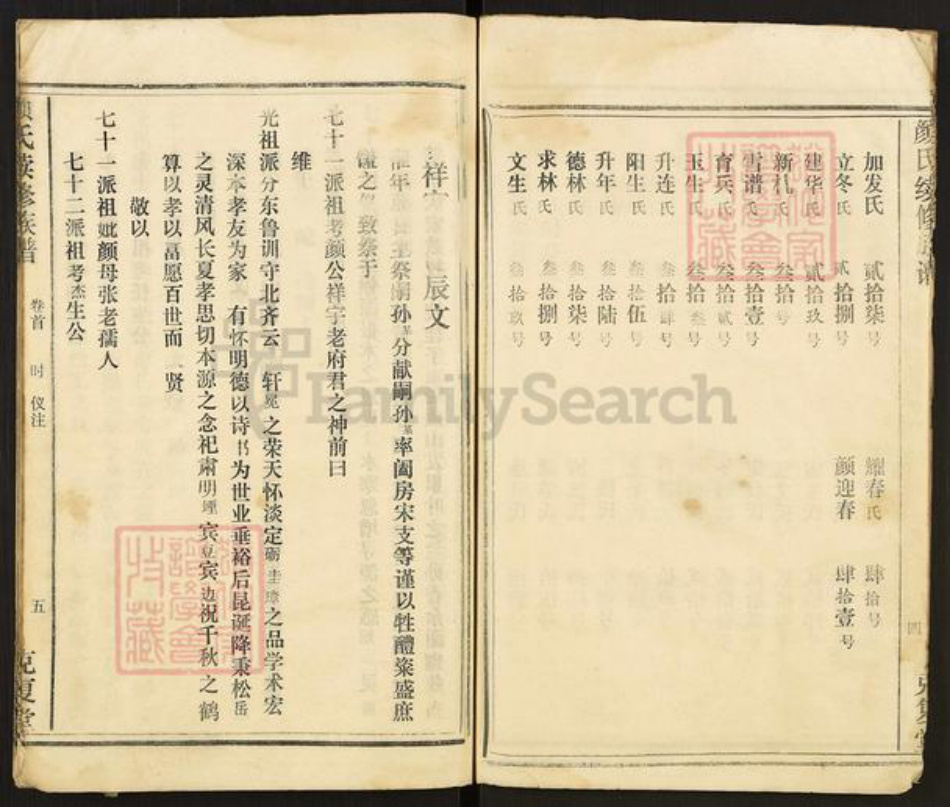 颜氏续修族谱
加发氏 贰拾柒号 耀春氏 肆拾号
立冬氏 贰拾捌号 颜迎春 肆拾壹号
建华氏 贰拾玖号
新礼氏 叁拾号
雪谱氏 叁拾壹号
育兵氏 叁拾贰号
玉生氏 叁拾叁号
升连氏 叁拾肆号
阳生氏 叁拾伍号
升年氏 叁拾陆号
德林氏 叁拾柒号
求林氏 叁拾捌号
文生氏 叁拾玖号
四
祥 辰文
年 祭嗣孙 分献嗣孙 率阖房宋支等谨以牲醴粢盛庶
之 致祭于
七十一派祖考颜公祥宇老府君之神前曰
维
光祖派分东鲁训守北齐云 轩冕之荣天怀淡定砺圭璋之品学术宏
深本孝友为家 有怀明德以诗书为世业垂裕后昆诞降秉松岳
之灵清风长夏孝思切本源之念祀肃明禋宾豆宾边祝千秋之鹤
算以孝以富愿百世而 贤
敬以
七十一派祖妣颜母张老孺人
七十二派祖考杰生公
颜氏续修族谱
卷首
时 仪注
五
克复堂
FamilySearch